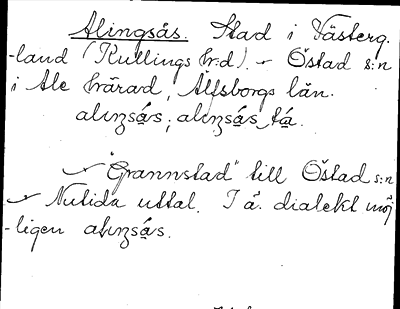 Alingsås. Stad i Västerg.
-land (Kullings hr:d). - Östad s:n
i Ale härad, Älfsborgs län.
alıŋså̱s; alıŋså̱s ta̱.
"Grannstad" till Östad s:n
Nutida uttal. I ä. dialekt möj
-ligen alıŋså̱s.